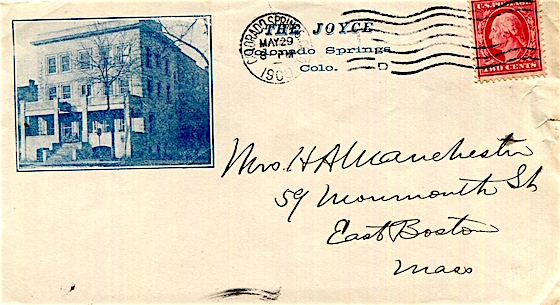 THE JOYCE
Colorado Springs
Colo. D
COLORADO SPRINGS
MAY 29
PM
190
U.S. POSTAGE
TWO CENTS
Mrs. H A Manchester
59 Monmouth St
East Boston
Mass